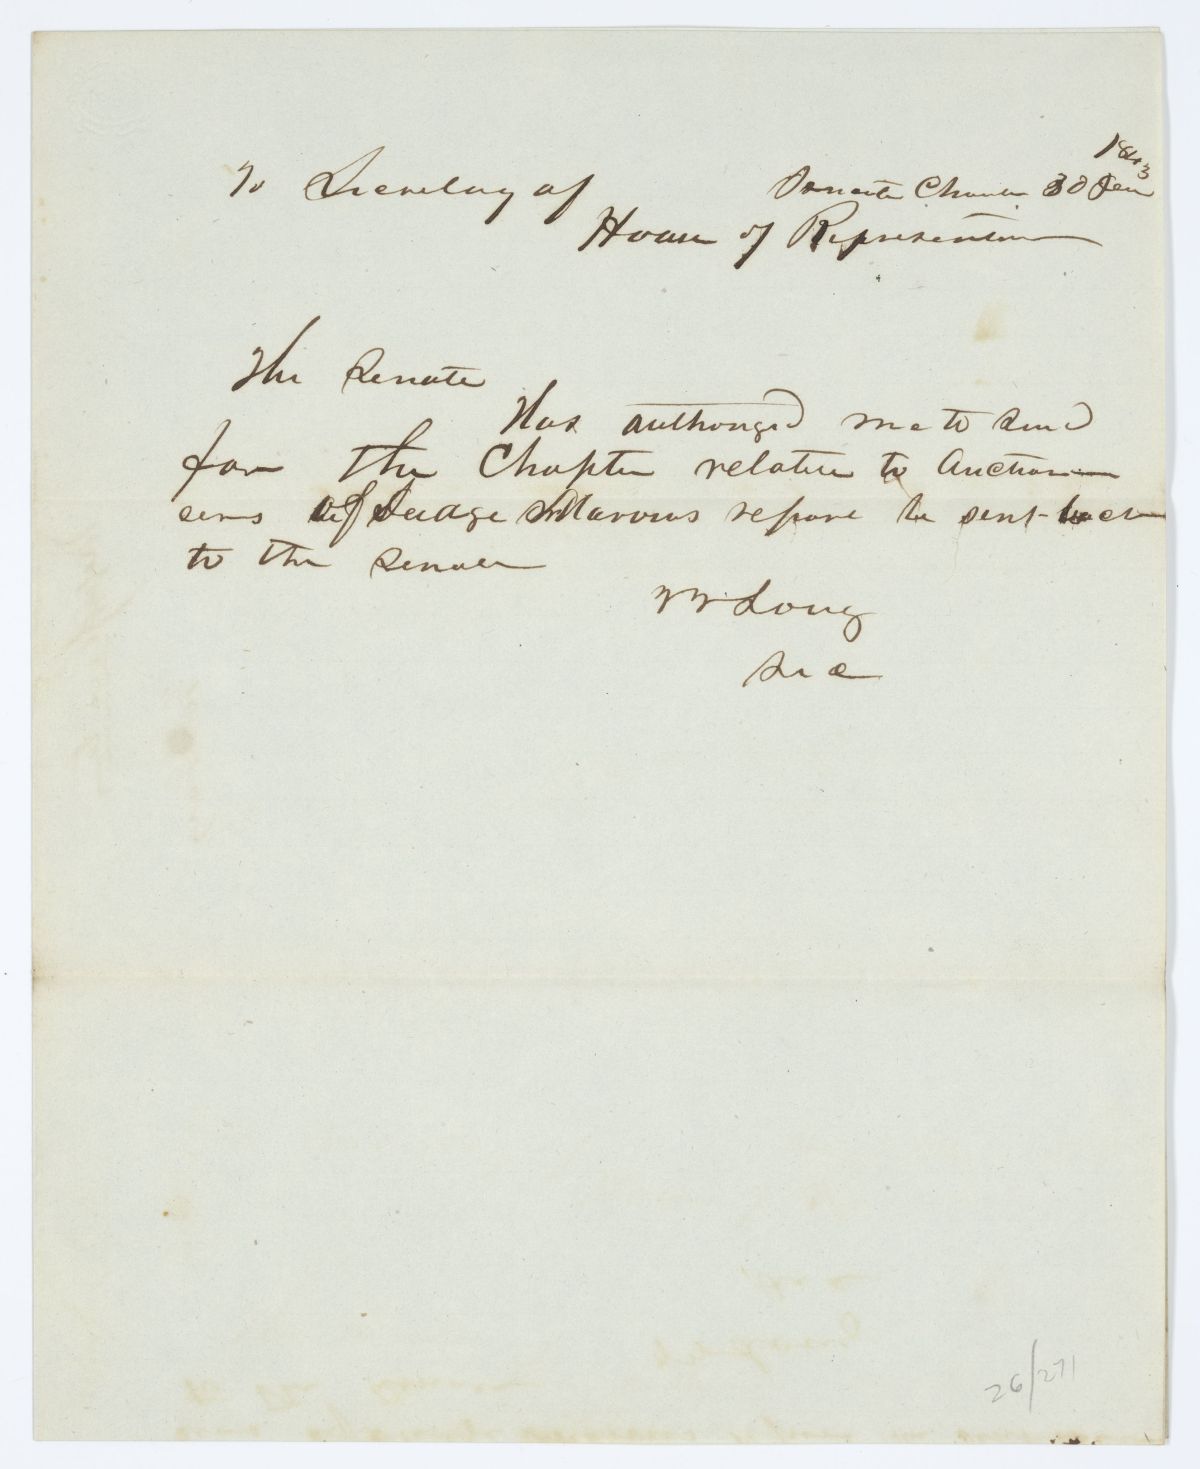 1843
To Secretary of Senate Chamber 30 Jan
House of Representative
The Senate
Has authorized me to send
for the Chapter relative to Auction
eers of Judge report be sent back
to the Senate
W W Long
Sec
26/271